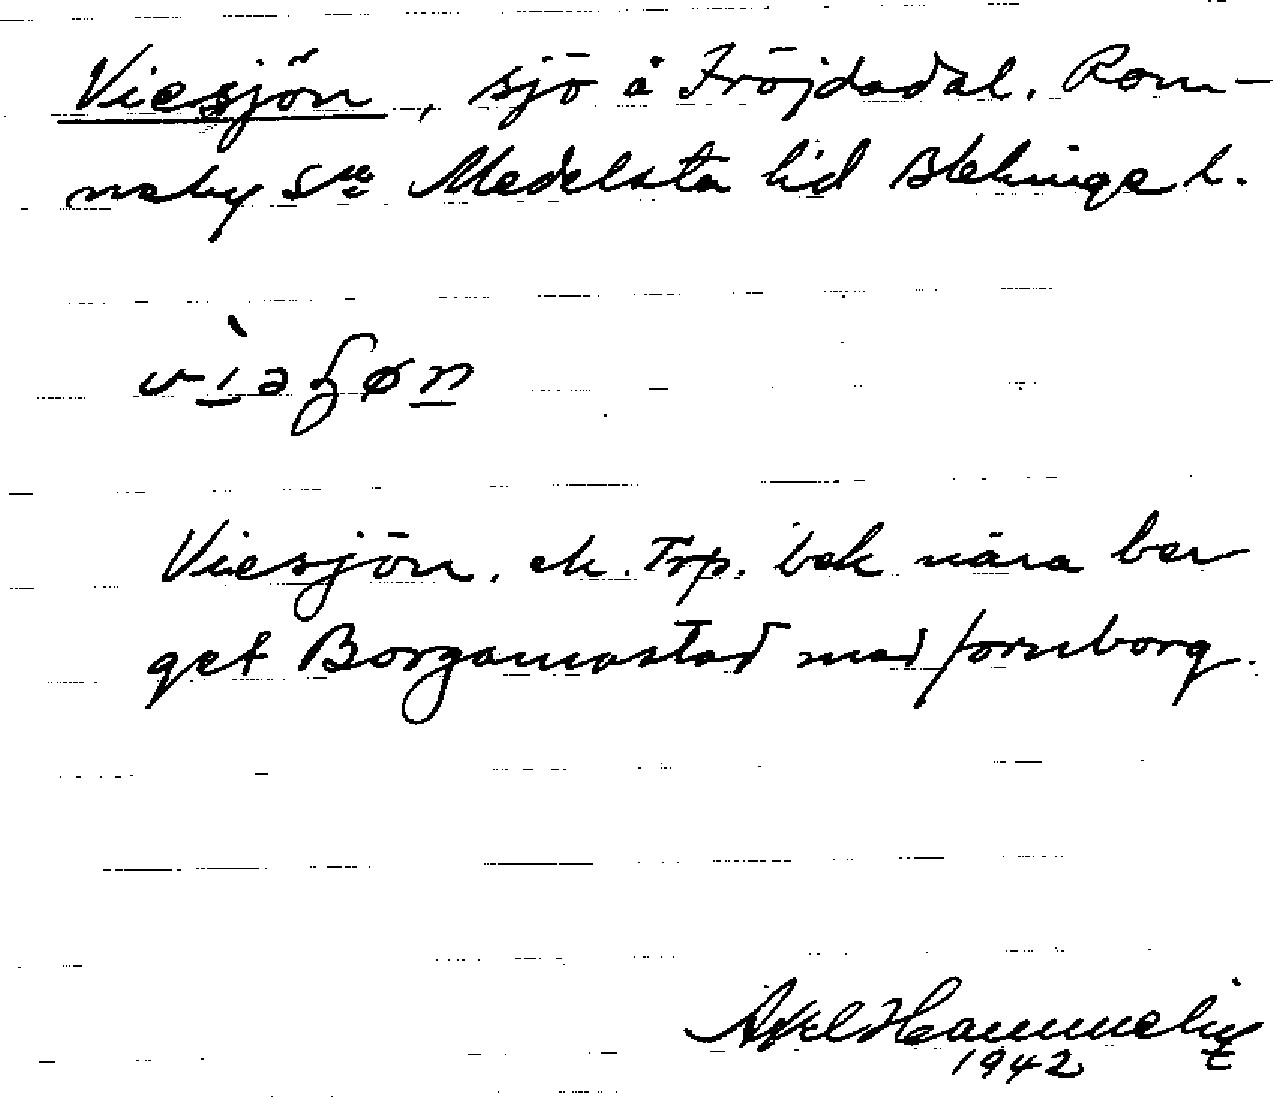 Viesjön, sjö å Fröjdadal. Ronn-
neby Sn Medelsta hd Blekinge l.
vìəʃøn
Viesjön. ek. Trp. bek nära ber
get Borgamastad med fornborg.
Axel Hammelin
1942